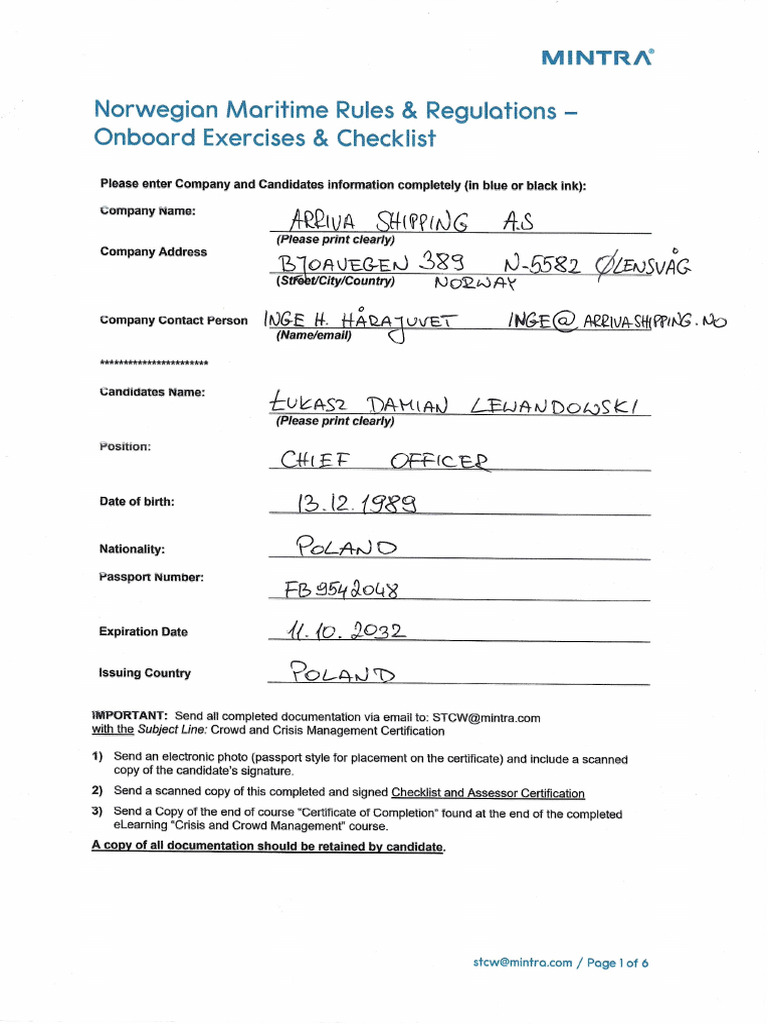 MINTRA®
Norwegian Maritime Rules & Regulations –
Onboard Exercises & Checklist
Please enter Company and Candidates information completely (in blue or black ink):
Company Name: ARRIVA SHIPPING A.S
(Please print clearly)
Company Address BJOAVEGEN 389 N-5582 ØLENSVÅG
(Street/City/Country) NORWAY
Company Contact Person INGE H. HÅRAJUVET INGE@ARRIVASHIPPING.NO
(Name/email)
***********************
Candidates Name: ŁUKASZ DAMIAN LEWANDOWSKI
(Please print clearly)
Position: CHIEF OFFICER
Date of birth: 13.12.1989
Nationality: POLAND
Passport Number: FB9542048
Expiration Date 11.10.2032
Issuing Country POLAND
IMPORTANT: Send all completed documentation via email to: STCW@mintra.com
with the Subject Line: Crowd and Crisis Management Certification
1) Send an electronic photo (passport style for placement on the certificate) and include a scanned
copy of the candidate's signature.
2) Send a scanned copy of this completed and signed Checklist and Assessor Certification
3) Send a Copy of the end of course "Certificate of Completion" found at the end of the completed
eLearning "Crisis and Crowd Management" course.
A copy of all documentation should be retained by candidate.
stcw@mintra.com / Page 1 of 6